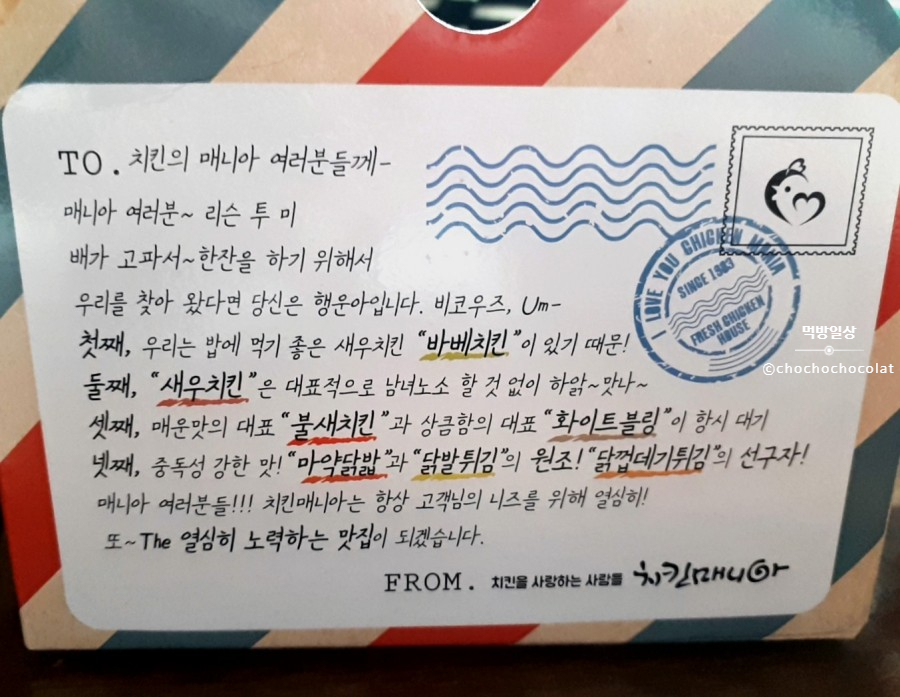 TO. 치킨의 매니아 여러분들께-
매니아 여러분~ 리슨 투 미
배가 고파서~한잔을 하기 위해서
우리를 찾아 왔다면 당신은 행운아입니다. 비코우즈, Um-
첫째, 우리는 밥에 먹기 좋은 새우치킨 "바베치킨"이 있기 때문!
둘째, "새우치킨"은 대표적으로 남녀노소 할 것 없이 하앍~맛나~
셋째, 매운맛의 대표 "불새치킨"과 상큼함의 대표 "화이트블링"이 항시 대기
넷째, 중독성 강한 맛! "마약닭밥"과 "닭발튀김"의 원조! "닭껍데기튀김"의 선구자!
매니아 여러분들!!! 치킨매니아는 항상 고객님의 니즈를 위해 열심히!
또~The 열심히 노력하는 맛집이 되겠습니다.
FROM. 치킨을 사랑하는 사람들 치킨매니아
LOVE YOU CHICKEN MANIA
SINCE 1983
FRESH CHICKEN
HOUSE
먹방일상
®
©chochochocolat